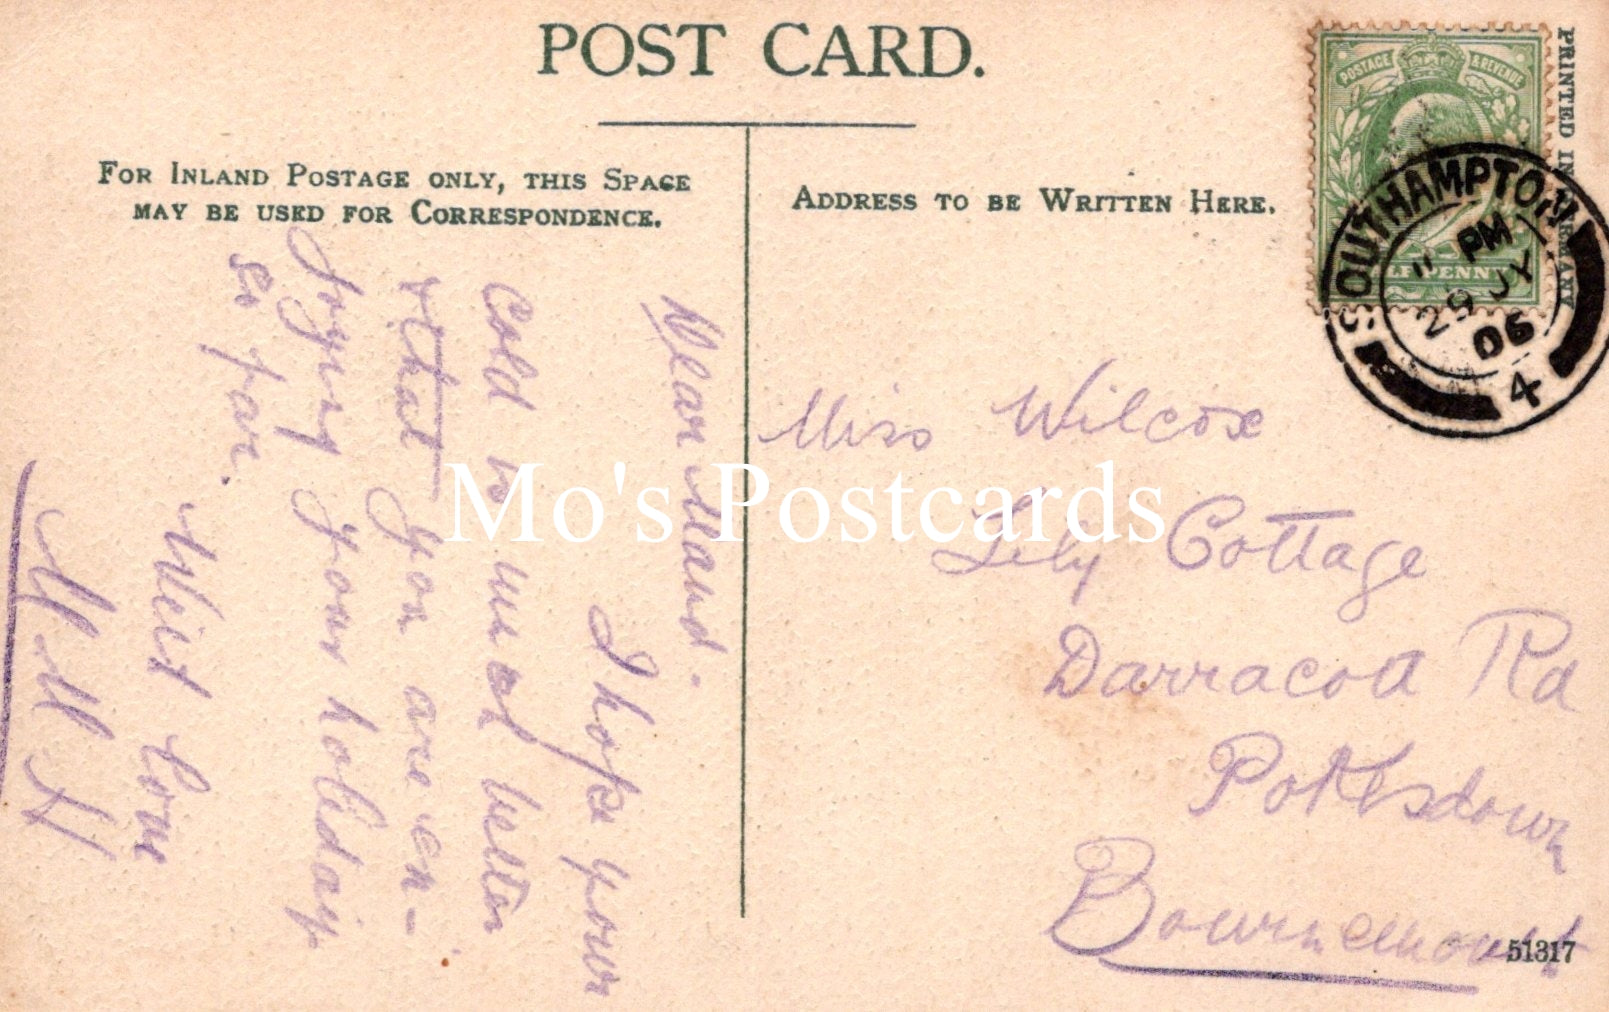 POST CARD.
FOR INLAND POSTAGE ONLY, THIS SPACE
MAY BE USED FOR CORRESPONDENCE.
ADDRESS TO BE WRITTEN HERE.
POSTAGE & REVENUE
HALFPENNY
PRINTED IN GERMANY
SOUTHAMPTON
11 PM
29 JY
06
4
Dear Maud.
I hope your
Cold is much better
& that you are en-
joying your holiday
so far.
With love
M. M. H
Miss Wilcox
Lily Cottage
Darracott Rd
Pokesdown
Bournemouth
51317
Mo's Postcards